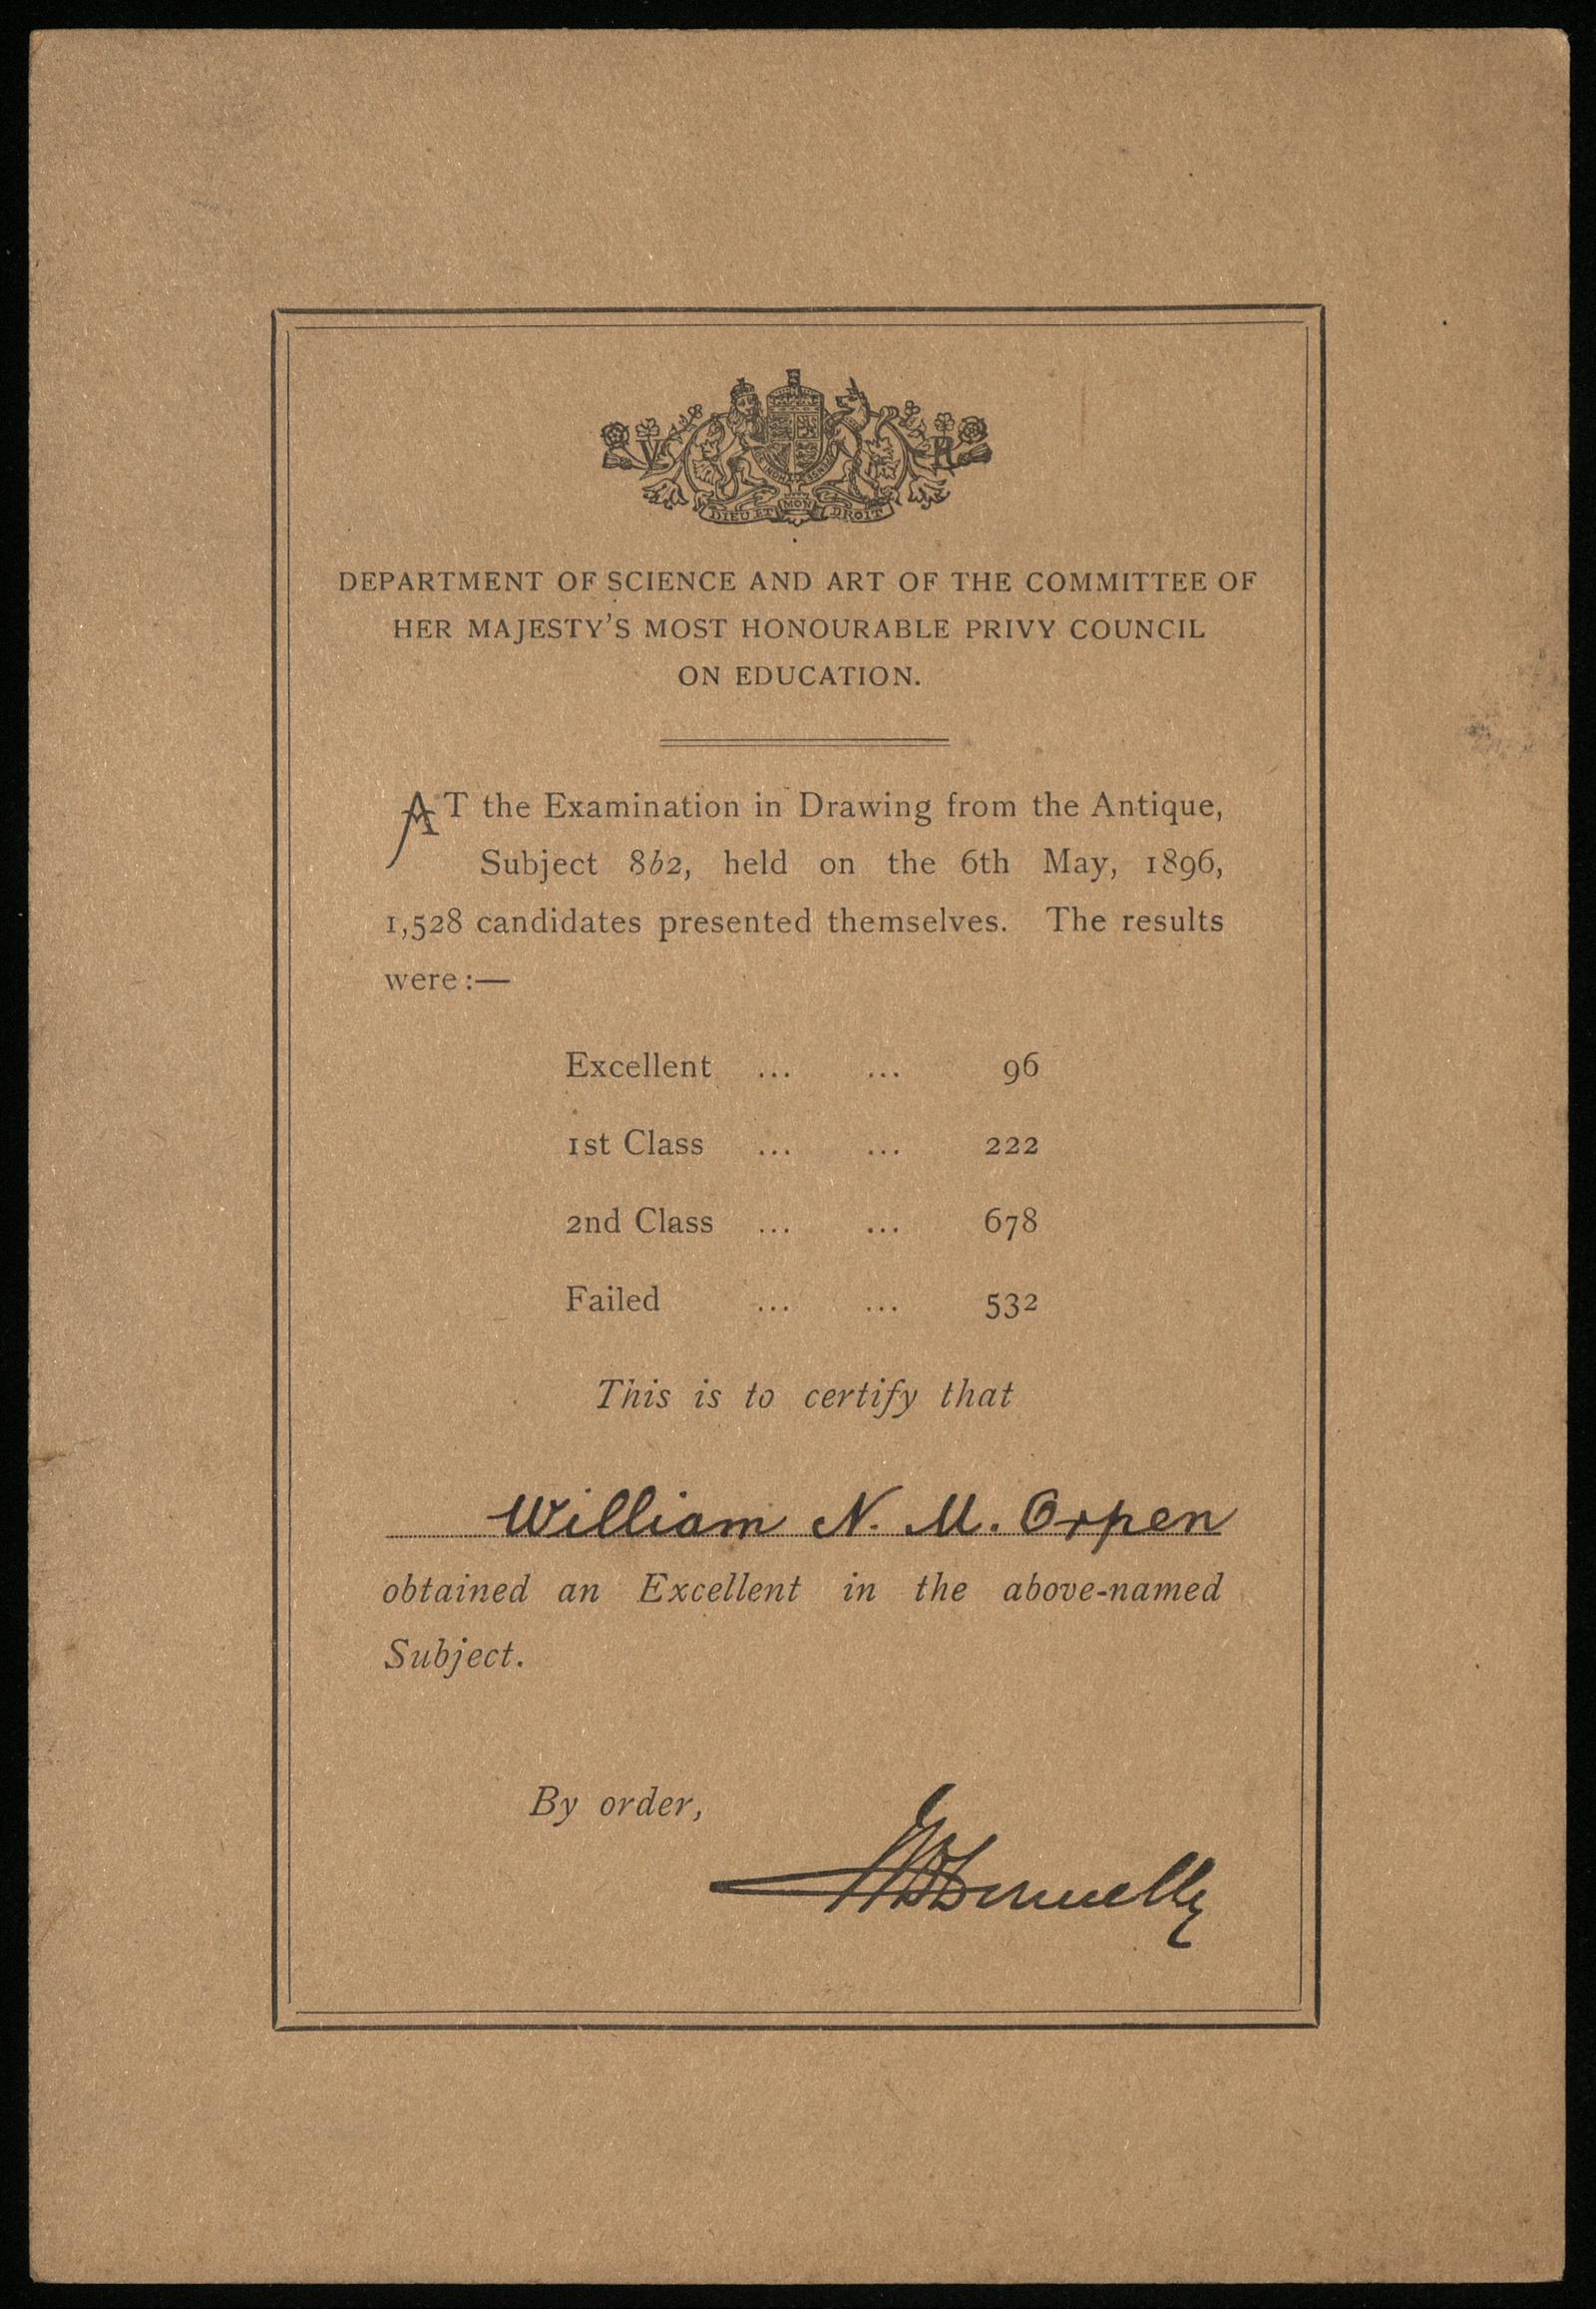 V R
DIEU ET MON DROIT
DEPARTMENT OF SCIENCE AND ART OF THE COMMITTEE OF
HER MAJESTY'S MOST HONOURABLE PRIVY COUNCIL
ON EDUCATION.
AT the Examination in Drawing from the Antique,
Subject 8b2, held on the 6th May, 1896,
1,528 candidates presented themselves. The results
were:—
Excellent ... ... 96
1st Class ... ... 222
2nd Class ... ... 678
Failed ... ... 532
This is to certify that
William N. M. Orpen
obtained an Excellent in the above-named
Subject.
By order,
Donnelly